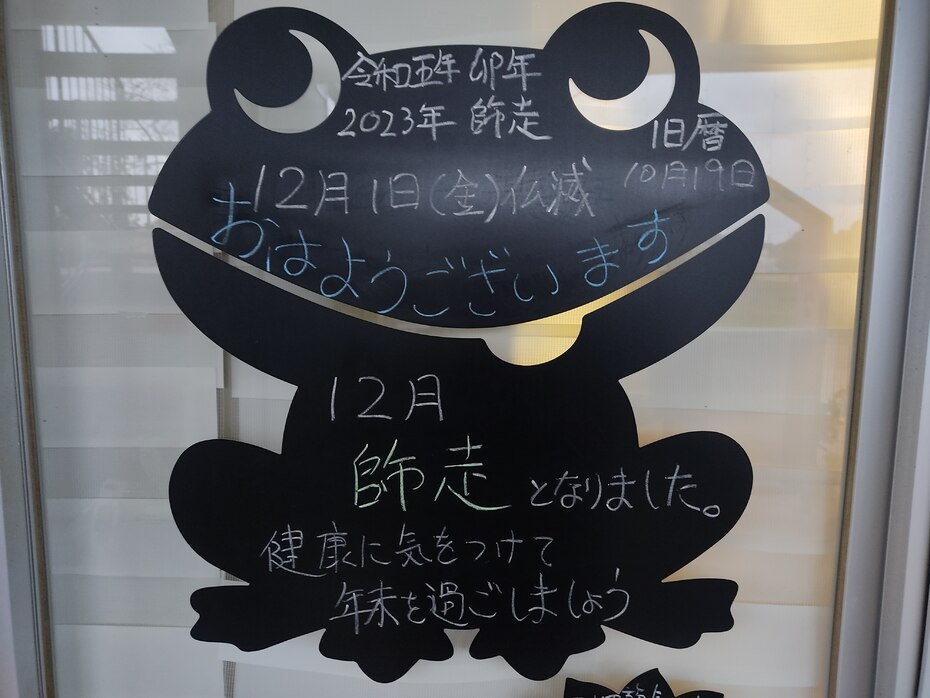 令和五年 卯年
2023年 師走
旧暦
10月19日
12月1日(金)仏滅
おはようございます
12月
師走となりました。
健康に気をつけて
年末を過ごしましょう